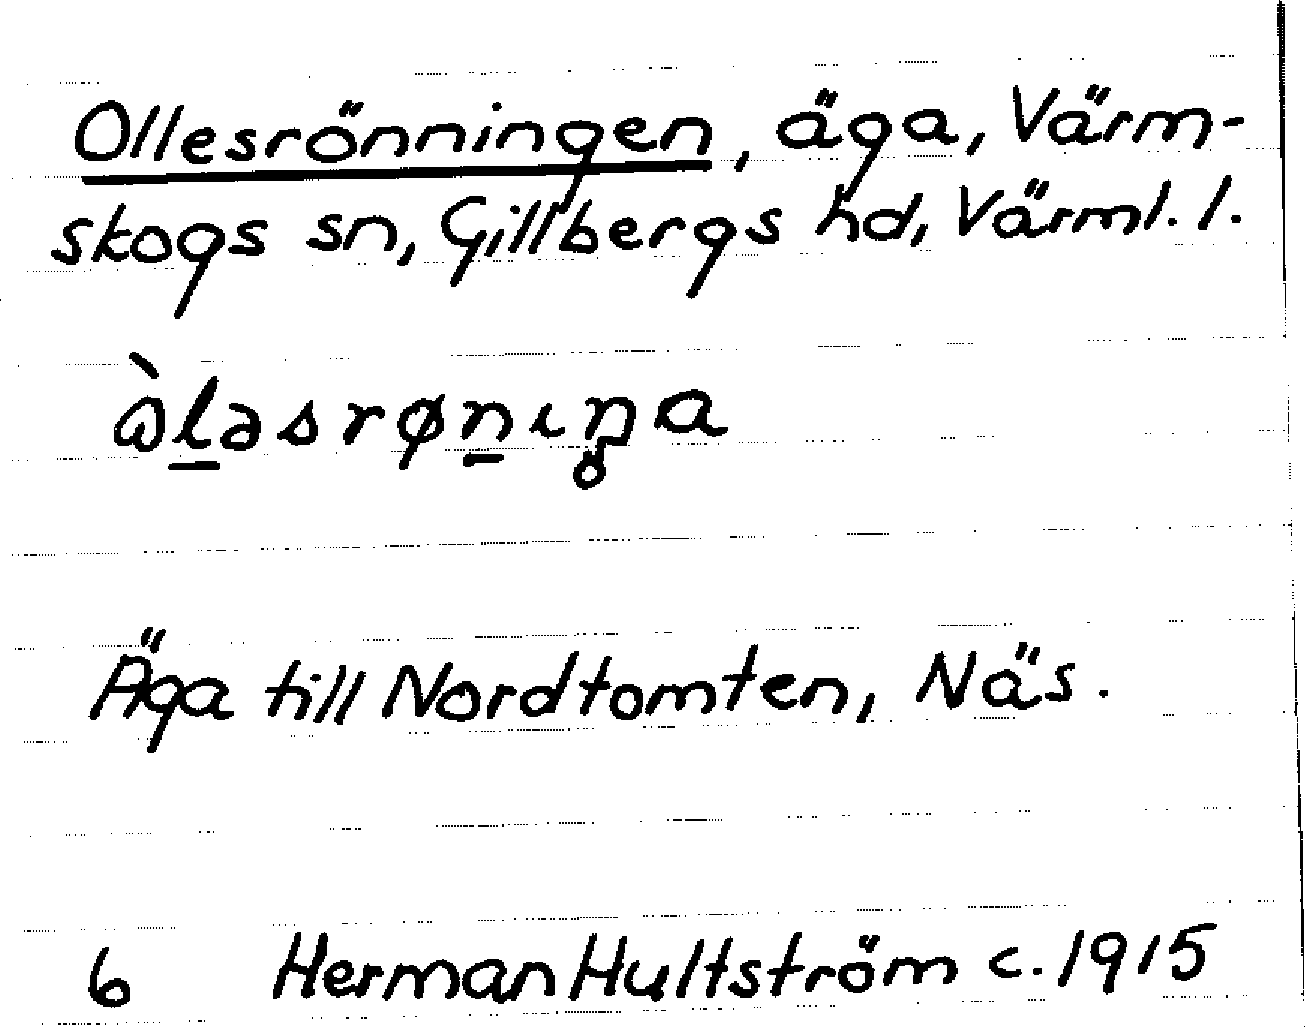 Ollesrönningen, äga, Värm-
skogs sn, Gillbergs hd, Värml. l.
òl̲əsrøn̲ıŋ̥a
Äga till Nordtomten, Näs.
6 Herman Hultström c. 1915